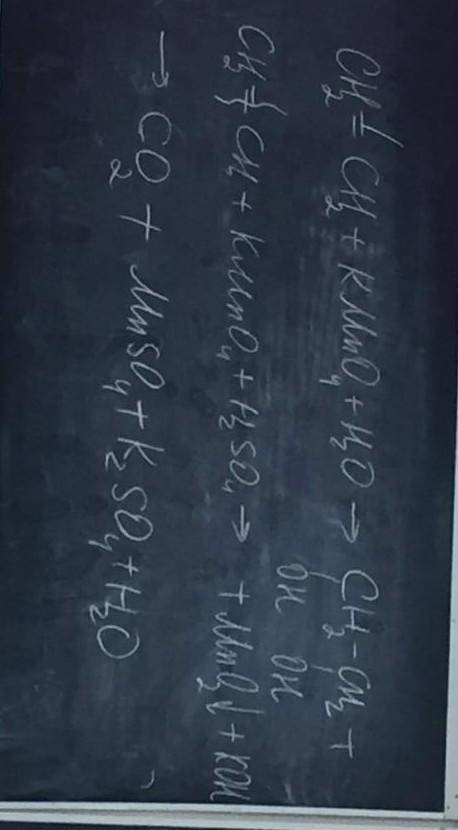 CH₂=CH₂ + KMnO₄ + H₂O → CH₂-CH₂ +
OH OH
+ MnO₂↓ + KOH
CH₂=CH + KMnO₄ + H₂SO₄ →
→ CO₂ + MnSO₄ + K₂SO₄ + H₂O